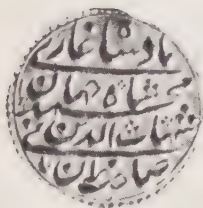 بادشاه غازی
شاه جهان
شهاب الدین
صاحب قران